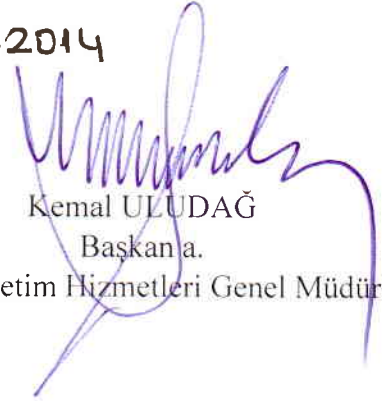 2014
Kemal ULUDAĞ
Başkan a.
etim Hizmetleri Genel Müdür